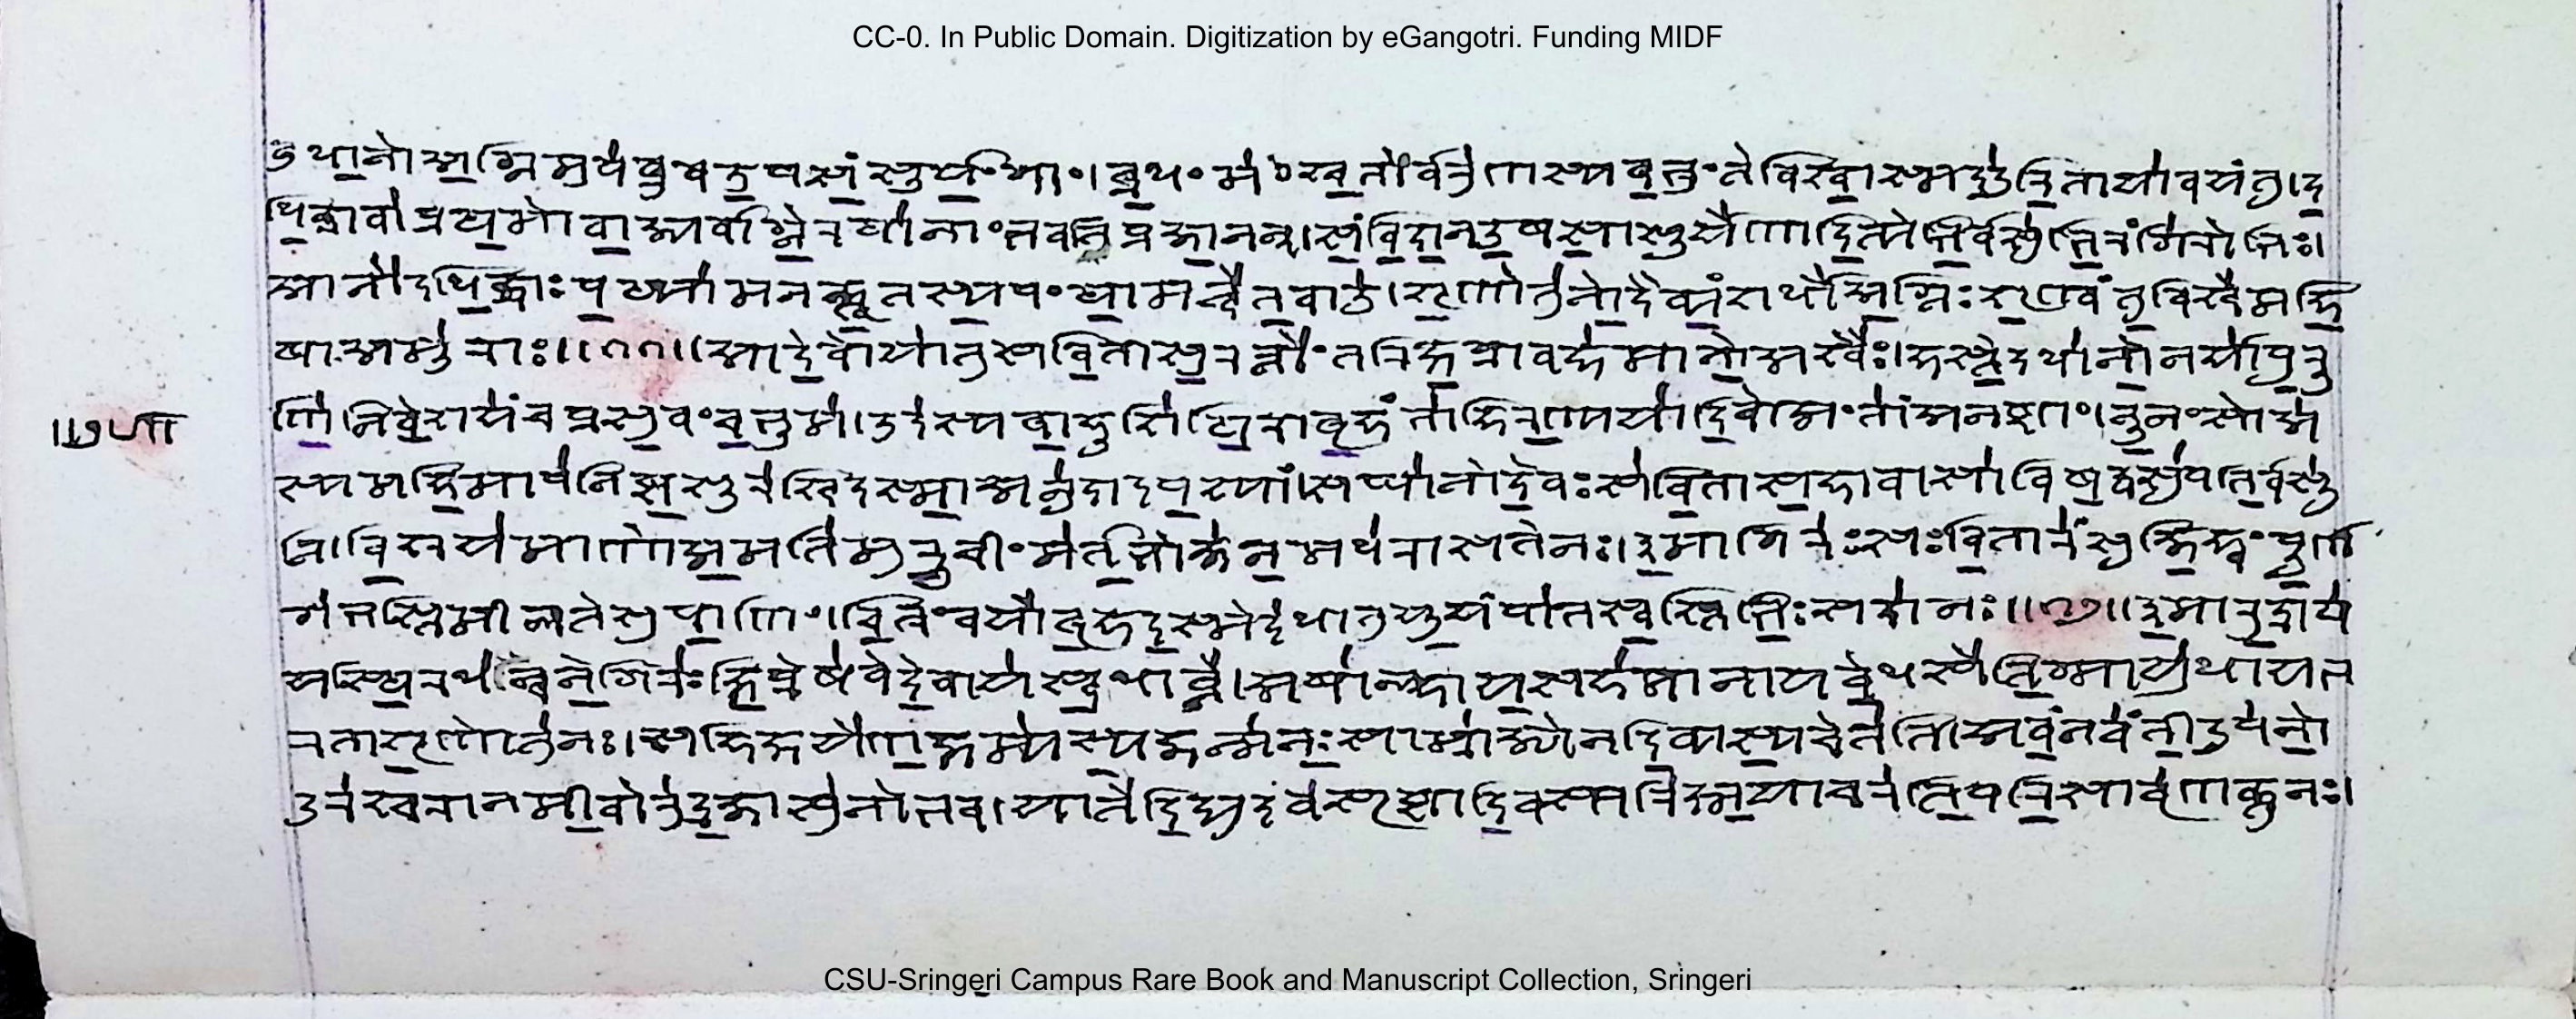 बुधानो अग्निमुप ब्रुव उषसं सूर्यं गां । ब्रध्नं मंश्चतोर्वरुणस्य बभ्रुं ते विश्वास्मद्दुरिता यावयंतु । द
धिक्रावा प्रथमो वाज्यर्वाग्रे रथानां भवति प्रजानन् । संविदान उषसा सूर्येणादित्येभिर्वसुभिरंगिरोभिः ।
आ नो दधिक्राः पथ्यामनक्त्वृतस्य पंथामन्वेतवा उ । शृणोतु नो दैव्यं शर्धो अग्निः शृण्वंतु विश्वे महि
षा अमूराः ॥ ११ ॥ आ देवो यातु सविता सुरत्नोंतरिक्षप्रा वहमानो अश्वैः । हस्ते दधानो नर्या पुरू
णि निवेशयंच प्रसुवंच भूम । उदस्य बाहू शिथिरा बृहंता हिरण्यया दिवो अंताँ अनष्टां । नूनं सो अ
स्य महिमा पनिष्ट सूरश्चिदस्मा अनु दादपस्यां । स घा नो देवः सविता सहावा साविषद्वसुपतिर्वसू
नि । विश्रयमाणो अमतिमुरूचीं मर्तभोजनमध रासते नः । इमा गिरः सवितारं सुजिह्वं पूर्ण
गभस्तिमीळते सुपाणिं । चित्रं वयो बृहदस्मे दधातु यूयं पात स्वस्तिभिः सदा नः ॥ १२ ॥ इमा रुद्राय
स्थिरधन्वने गिरः क्षिप्रेषवे देवाय स्वधाव्ने । अषाळ्हाय सहमानाय वेधसे तिग्मायुधाय भ
रता शृणोतु नः । स हि क्षयेण क्षम्यस्य जन्मनः साम्राज्येन दिव्यस्य चेतति । अवन्नवंतीरुप नो
दुरश्चरानमीवो रुद्र जासु नो भव । या ते दिद्युदवसृष्टा दिवस्परि क्ष्मया चरति परि सा वृणक्तु नः ।
CC-0. In Public Domain. Digitization by eGangotri. Funding MIDF
CSU-Sringeri Campus Rare Book and Manuscript Collection, Sringeri